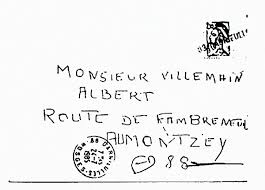 MONSIEUR VILLEMAIN
ALBERT
ROUTE DE FAMBREMENIL
AUMONTZEY
88
24-7
1985